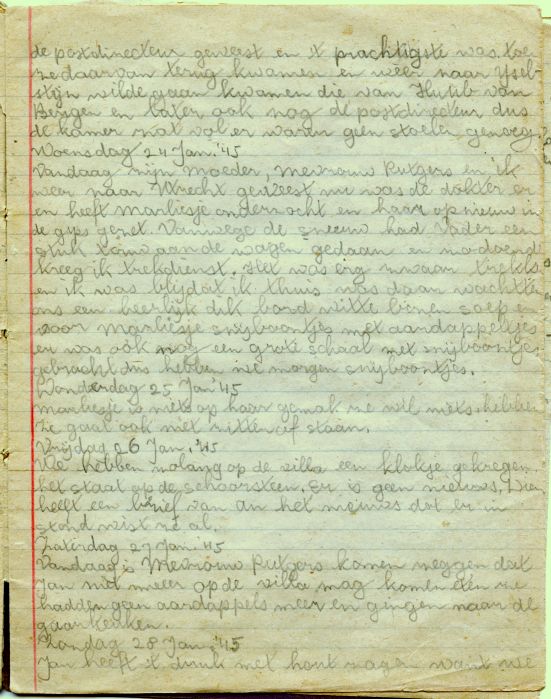 de postdirecteur geweest en 't prachtigste was toe
ze daarvan terug kwamen en weer naar Yssel-
stijn wilde gaan kwamen die van Huub van
Bergen en later ook nog de postdirecteur dus
de kamer zat vol er waren geen stoelen genoeg.
Woensdag 24 Jan. '45
Vandaag mijn moeder, Mevrouw Rutgers en ik
weer naar Utrecht geweest nu was de dokter er
en heeft Marliesje onderzocht en haar opnieuw in
de gips gezet. Vanwege de sneeuw had Vader een
stuk touw aan de wagen gedaan en zodoend
kreeg ik trekdienst. Het was erg zwaar trekken
en ik was blij dat ik thuis was daar wachtte
ons een heerlijk dik bord witte bonen soep en
voor Marliesje snijboontjes met aardappeltjes
er was ook nog een grote schaal met snijboontjes
gebracht dus hebben we morgen snijboontjes.
Donderdag 25 Jan '45
Marliesje is niets op haar gemak ze wil niets hebben
ze gaat ook niet zitten of staan.
Vrijdag 26 Jan. '45
We hebben zolang op de villa een klokje gekregen
het staat op de schoorsteen. Er is geen nieuws.
heeft een brief van An het nieuws dat er in
stond wist ze al.
Zaterdag 27 Jan. '45
Vandaag is Mevrouw Rutgers komen zeggen dat
Jan niet meer op de villa mag komen eten ze
hadden geen aardappels meer en gingen naar de
gaarkeuken.
Zondag 28 Jan. '45
Jan heeft 't druk met hout zagen want we